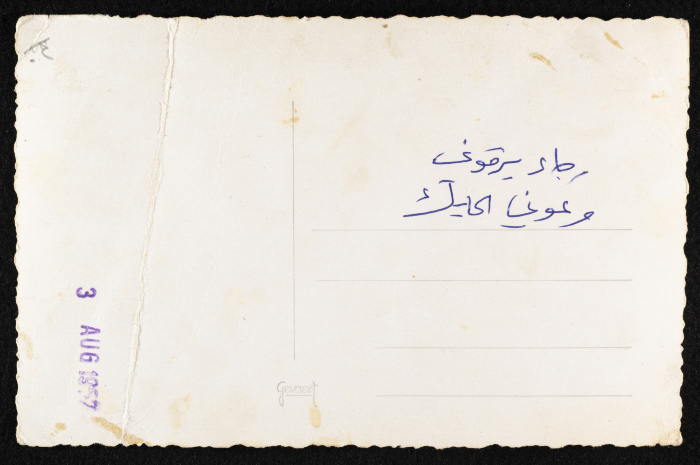 رجاء يرقوني
وعوني الحايك
3 AUG 1957
Gevaert